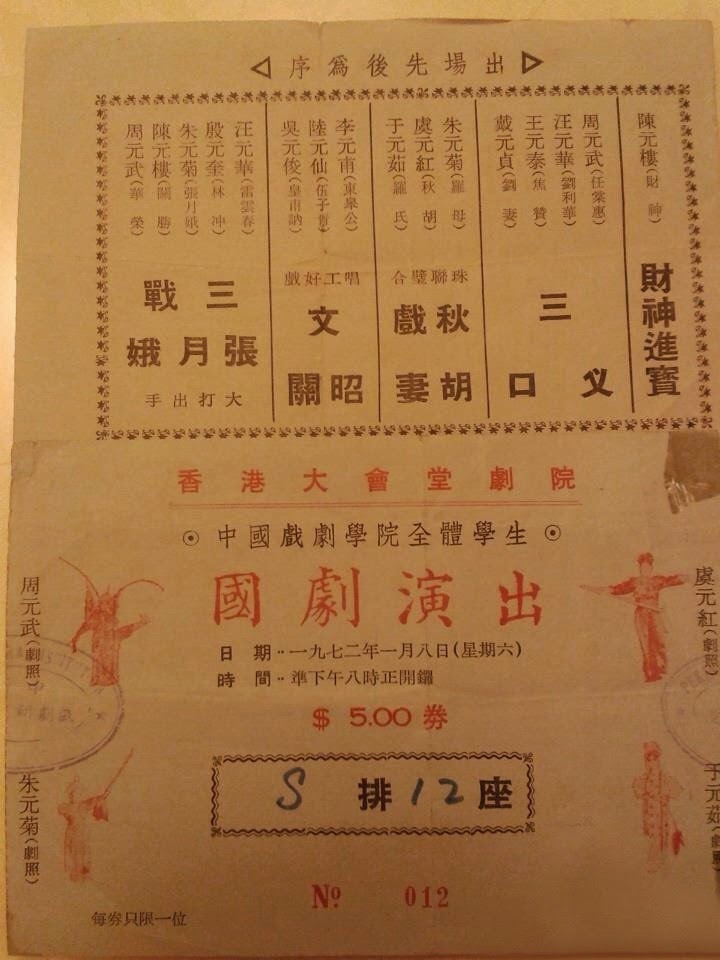 出場先後爲序
陳元樓(財神)
財神進寶
周元武(任棠惠)
汪元華(劉利華)
王元泰(焦贊)
戴元貞(劉妻)
三义口
朱元菊(羅母)
虞元紅(秋胡)
于元茹(羅氏)
珠聯璧合
秋胡戲妻
李元甫(東皋公)
陸元仙(伍子胥)
吳元俊(皇甫訥)
唱工好戲
文昭關
汪元華(雷雲春)
殷元奎(林冲)
朱元菊(張月娥)
陳元樓(關勝)
周元武(華榮)
三戰
張月娥
大打出手
香港大會堂劇院
⊙中國戲劇學院全體學生⊙
國劇演出
日期··一九七二年一月八日(星期六)
時間··準下午八時正開鑼
$ 5.00 券
S 排 12 座
№ 012
每券只限一位
周元武(劇照)
虞元紅(劇照)
朱元菊(劇照)
于元茹(劇照)